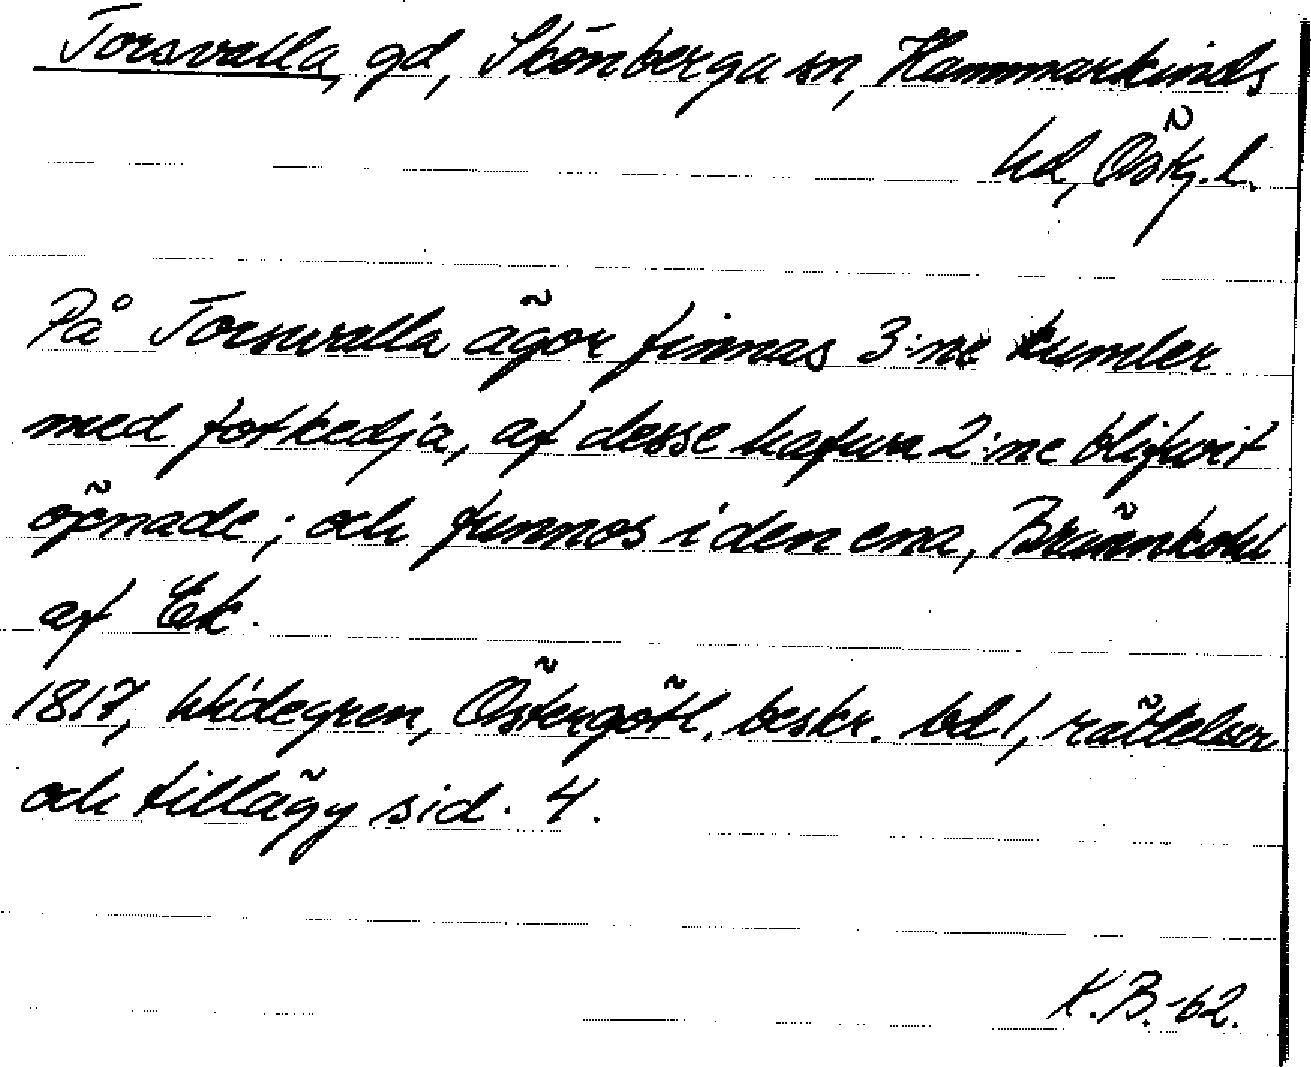 Torsvalla, gd, Skönberga sn, Hammarkinds
hd, Östg. l.
På Torsvalla ägor finnas 3:ne kumler
med fotkedja, af desse hafva 2:ne blifvit
öpnade; och funnos i den ena, Brännkohl
af Ek.
1817, Widegren, Östergötl. beskr. bd 1, rättelser
och tillägg sid. 4.
K.B.-62.